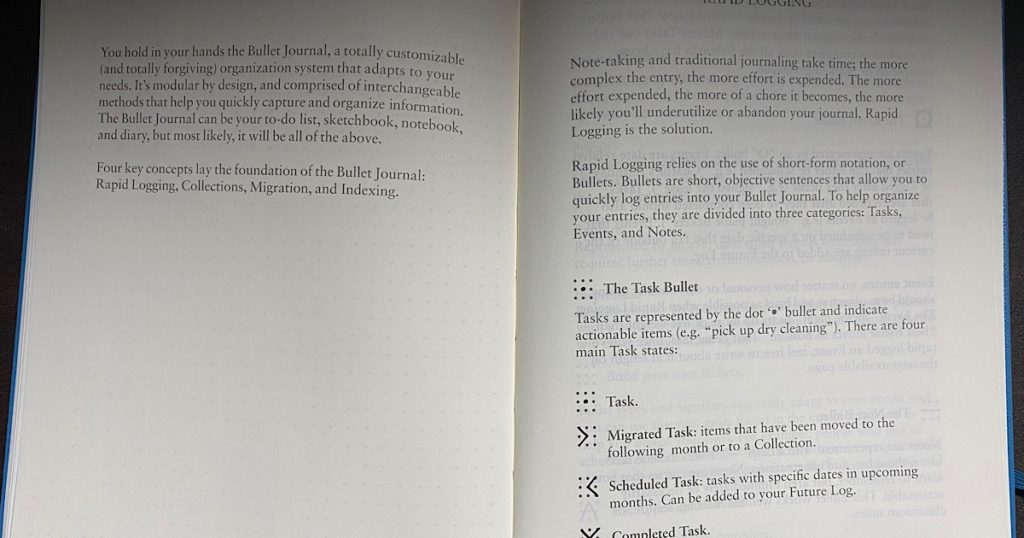 You hold in your hands the Bullet Journal, a totally customizable
(and totally forgiving) organization system that adapts to your
needs. It's modular by design, and comprised of interchangeable
methods that help you quickly capture and organize information.
The Bullet Journal can be your to-do list, sketchbook, notebook,
and diary, but most likely, it will be all of the above.
Four key concepts lay the foundation of the Bullet Journal:
Rapid Logging, Collections, Migration, and Indexing.
RAPID LOGGING
Note-taking and traditional journaling take time; the more
complex the entry, the more effort is expended. The more
effort expended, the more of a chore it becomes, the more
likely you'll underutilize or abandon your journal. Rapid
Logging is the solution.
Rapid Logging relies on the use of short-form notation, or
Bullets. Bullets are short, objective sentences that allow you to
quickly log entries into your Bullet Journal. To help organize
your entries, they are divided into three categories: Tasks,
Events, and Notes.
The Task Bullet
Tasks are represented by the dot ‘•’ bullet and indicate
actionable items (e.g. “pick up dry cleaning”). There are four
main Task states:
Build your own Bullets.
Task.
Migrated Task: items that have been moved to the
following month or to a Collection.
Scheduled Task: tasks with specific dates in upcoming
months. Can be added to your Future Log.
Completed Task.